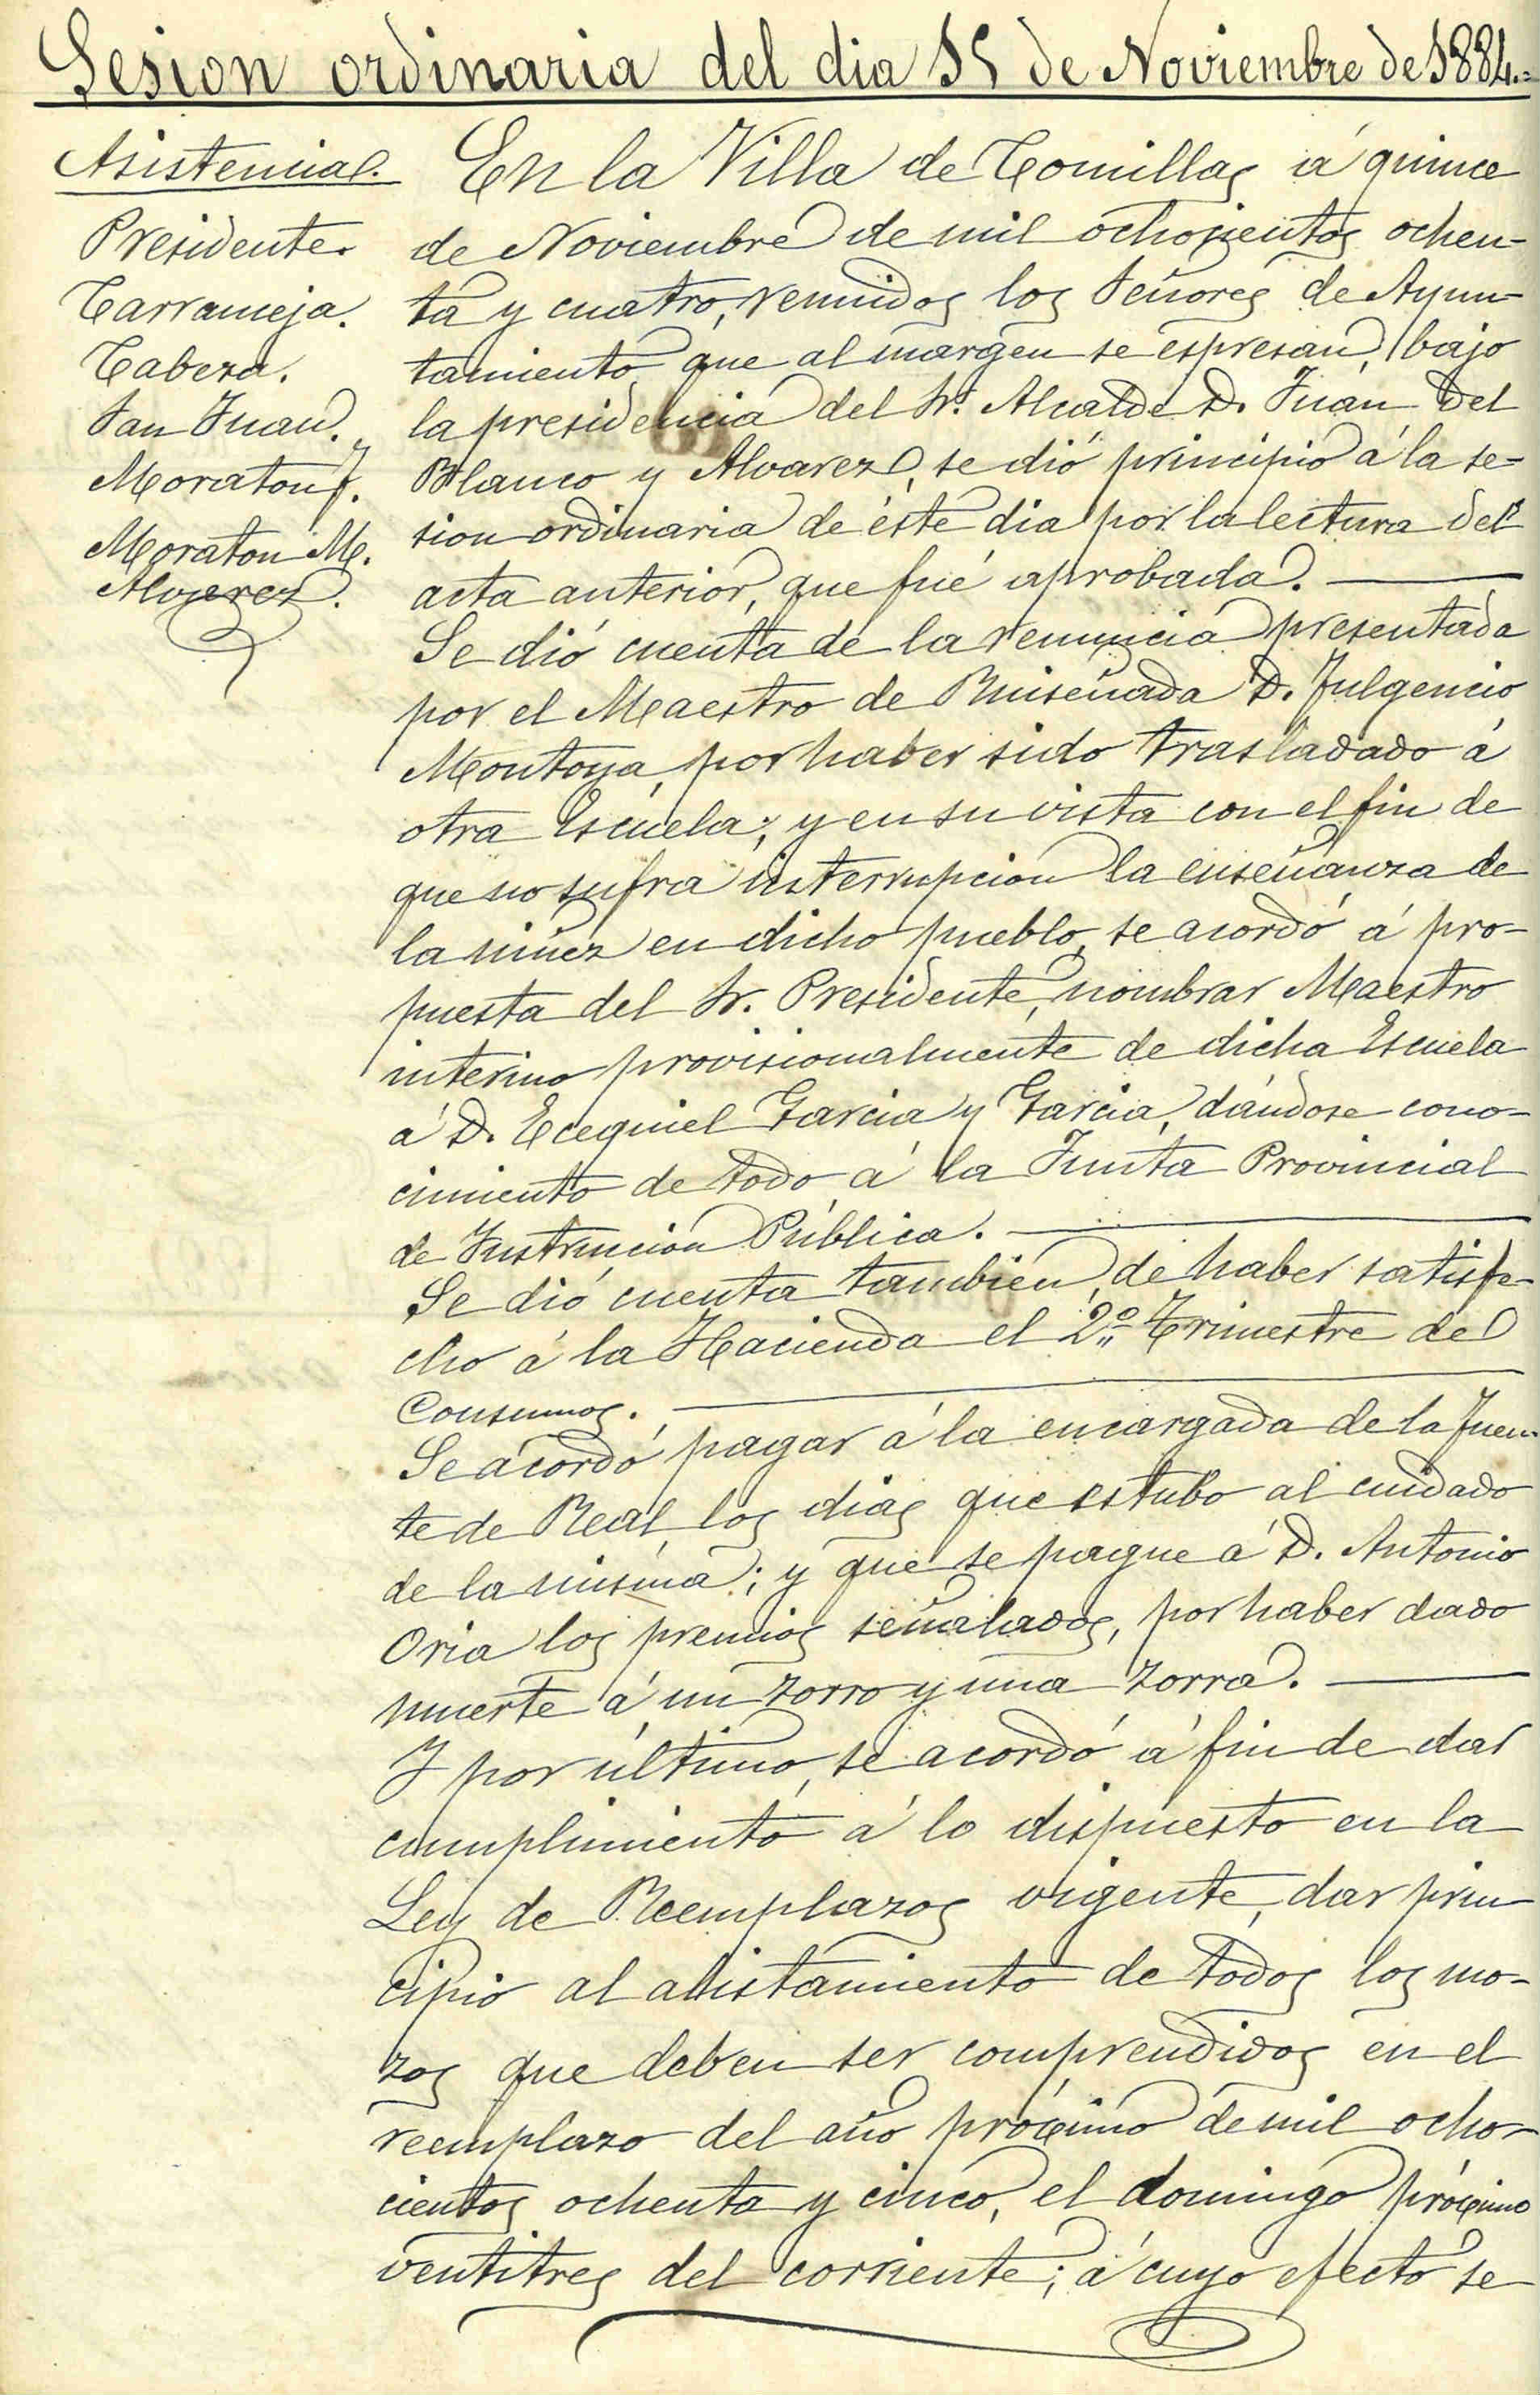 Sesion ordinaria del dia 15 de Noviembre de 1884.=
Asistencia.
Presidente.
Carranceja.
Cabeza.
San Juan.
Moraton J.
Moraton M.
Alvarez.
En la Villa de Comillas á quince
de Noviembre de mil ochocientos ochen-
ta y cuatro, reunidos los Señores de Ayun-
tamiento que al margen se espresan, bajo
la presidencia del Sr. Alcalde D. Juan del
Blanco y Alvarez, se dió principio á la se-
sion ordinaria de éste dia por la lectura del
acta anterior, que fué aprobada.
Se dió cuenta de la renuncia presentada
por el Maestro de Ruiseñada D. Fulgencio
Montoya, por haber sido trasladado á
otra Escuela; y en su vista con el fin de
que no sufra interrupcion la enseñanza de
la niñez en dicho pueblo, se acordó á pro-
puesta del Sr. Presidente, nombrar Maestro
interino provisionalmente de dicha Escuela
á D. Ecequiel Garcia y Garcia, dándose cono-
cimiento de todo á la Junta Provincial
de Instrucion Pública.
Se dió cuenta tambien, de haber satisfe-
cho á la Hacienda el 2º Trimestre de
Consumos.
Se acordó pagar á la encargada de la Fuen-
te de Real, los dias que estubo al cuidado
de la misma; y que se pague á D. Antonio
Oria los premios señalados, por haber dado
muerte á un zorro y una zorra.
Y por último, se acordó á fin de dar
cumplimiento á lo dispuesto en la
Ley de Reemplazos vigente, dar prin-
cipio al alistamiento de todos los mo-
zos que deben ser comprendidos en el
reemplazo del año prócimo de mil ocho-
cientos ochenta y cinco, el domingo prócimo
ventitres del corriente; á cuyo efecto se